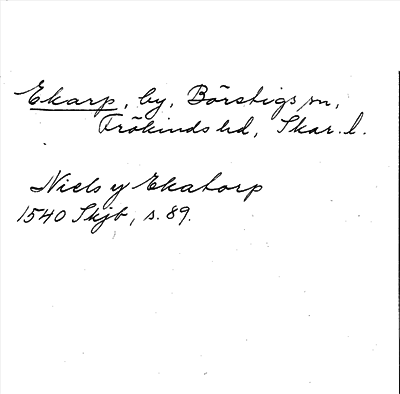 Ekarp, by, Börstigs sn,
Frökinds hd, Skar. l.
Niels y Ekatorp
1540 Skjb, s. 89.